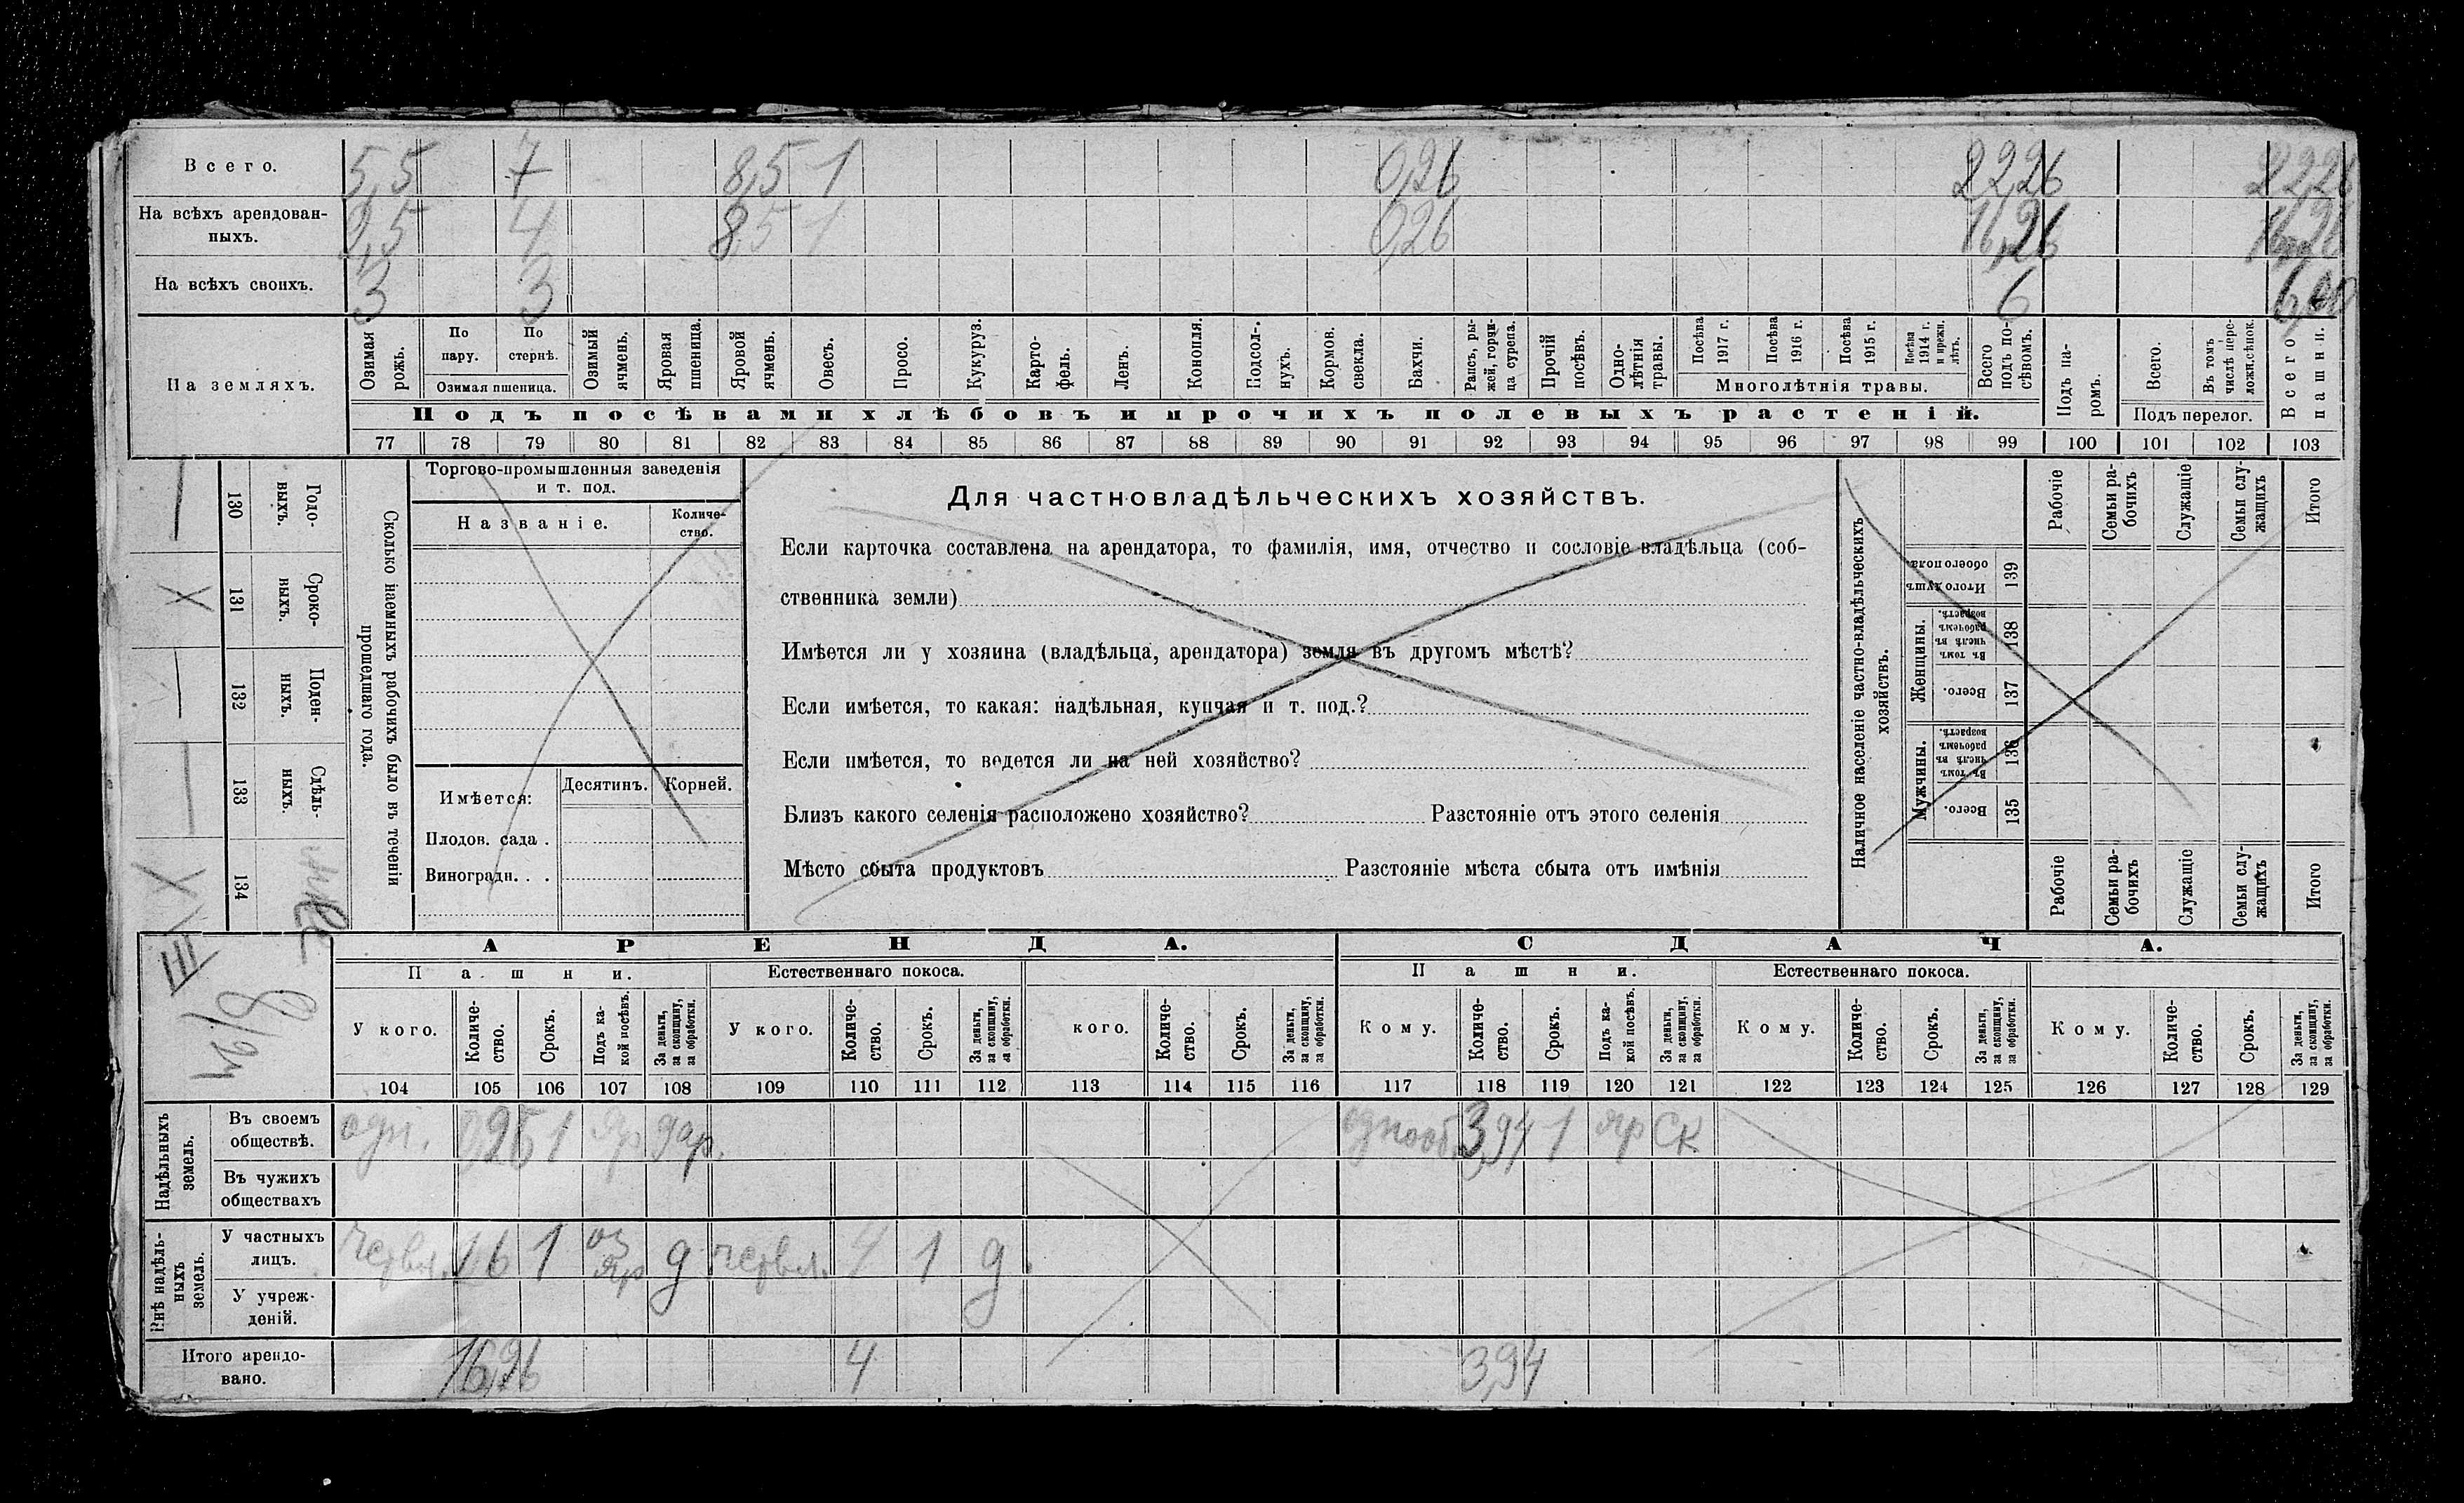 Всего. 5,5 7 8,5 1 0,26 22,26 22,26
На всѣхъ арендован-
ныхъ. 2,5 4 8,5 1 0,26 16,26
На всѣхъ своихъ. 3 3 6 6,00
На земляхъ.
Озимая рожь.
По пару.
По стернѣ.
Озимая пшеница.
Озимый ячмень.
Яровая пшеница.
Яровой ячмень.
Овесъ.
Просо.
Кукуруз.
Карто-
фель.
Ленъ.
Конопля.
Подсол-
нухъ.
Кормов. свекла.
Бахчи.
Рапсъ, ры-
жей, горчи-
ца сурепа.
Прочій посѣвъ.
Одно-
лѣтнія травы.
Посѣва 1917 г.
Посѣва 1916 г.
Посѣва 1915 г.
Посѣва 1914 г. и прежн. лѣтъ.
Многолѣтнія травы.
Всего подъ по-
сѣвомъ.
Подъ па-
ромъ.
Всего.
Въ томъ числѣ пере-
ложн. сѣнок.
Подъ перелог.
Всего пашни.
Подъ посѣвами хлѣбовъ и прочихъ полевыхъ растеній.
77 78 79 80 81 82 83 84 85 86 87 88 89 90 91 92 93 94 95 96 97 98 99 100 101 102 103
Сколько наемныхъ рабочихъ было въ теченіи
прошедшаго года.
Годо-
выхъ.
130
Сроко-
выхъ.
131
Поден-
ныхъ.
132
Сдѣль-
ныхъ.
133
134
Торгово-промышленныя заведенія
и т. под.
Названіе.
Количе-
ство.
Имѣется:
Десятинъ.
Корней.
Плодов. сада .
Виноградн. . .
Для частновладѣльческихъ хозяйствъ.
Если карточка составлена на арендатора, то фамилія, имя, отчество и сословіе владѣльца (соб-
ственника земли)
Имѣется ли у хозяина (владѣльца, арендатора) земля въ другомъ мѣстѣ?
Если имѣется, то какая: надѣльная, купчая и т. под.?
Если имѣется, то ведется ли на ней хозяйство?
Близъ какого селенія расположено хозяйство? Разстояніе отъ этого селенія
Мѣсто сбыта продуктовъ Разстояніе мѣста сбыта отъ имѣнія
Наличное населеніе частно-владѣльческихъ
хозяйствъ.
Рабочіе
Семьи ра-
бочихъ
Служащіе
Семьи слу-
жащихъ
Итого
Итого душъ обоего пола.
139
Женщины.
Въ томъ числѣ въ рабочемъ возрастѣ.
138
Всего.
137
Мужчины.
Въ томъ числѣ въ рабочемъ возрастѣ.
136
Всего.
135
Рабочіе
Семьи ра-
бочихъ
Служащіе
Семьи слу-
жащихъ
Итого
III
АРЕНДА. СДАЧА.
Пашни. Естественнаго покоса. Пашни. Естественнаго покоса.
У кого.
Количе-
ство.
Срокъ.
Подъ ка-
кой посѣвъ.
За деньги, за скопщину, за обработки.
У кого.
Количе-
ство.
Срокъ.
За деньги, за скопщину, за обработки.
кого.
Количе-
ство.
Срокъ.
За деньги, за скопщину, за обработки.
Кому.
Количе-
ство.
Срокъ.
Подъ ка-
кой посѣвъ.
За деньги, за скопщину, за обработки.
Кому.
Количе-
ство.
Срокъ.
За деньги, за скопщину, за обработки.
Кому.
Количе-
ство.
Срокъ.
За деньги, за скопщину, за обработки.
104 105 106 107 108 109 110 111 112 113 114 115 116 117 118 119 120 121 122 123 124 125 126 127 128 129
Надѣльныхъ
земель.
Въ своемъ
обществѣ. одн. 0,26 1 яр дар. однооб. 3,94 1 яр ск
Въ чужихъ
обществахъ
Внѣ надѣль-
ныхъ
земель.
У частныхъ
лицъ. 16 1 оз яр д 4 1 д.
У учреж-
деній.
Итого арендо-
вано. 16,26 4 3,94